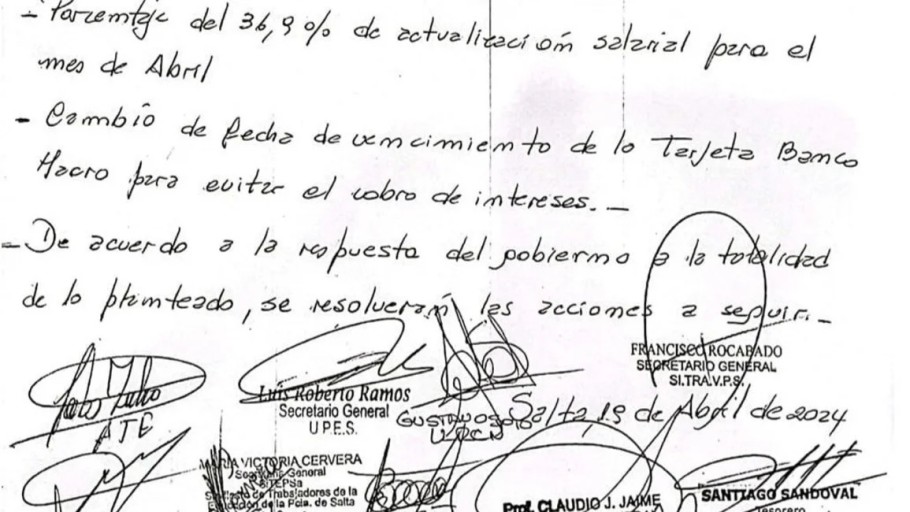 - Porcentaje del 36,9% de actualización salarial para el
mes de Abril
- Cambio de fecha de vencimiento de la Tarjeta Banco
Macro para evitar el cobro de intereses. -
- De acuerdo a la respuesta del gobierno a la totalidad
de lo planteado, se resolverán las acciones a seguir. -
FRANCISCO ROCABADO
SECRETARIO GENERAL
SI.TRA.V.P.S.
Luis Roberto Ramos
Secretario General
U P.E.S.
ATE
GUSTAVO
UPCN
Salta, 19 de Abril de 2024
MARIA VICTORIA CERVERA
Secretaria General
SITEPSa
Sindicato de Trabajadores de la
Educación de la Pcia. de Salta
Prof. CLAUDIO J. JAIME
SANTIAGO SANDOVAL
Tesorero